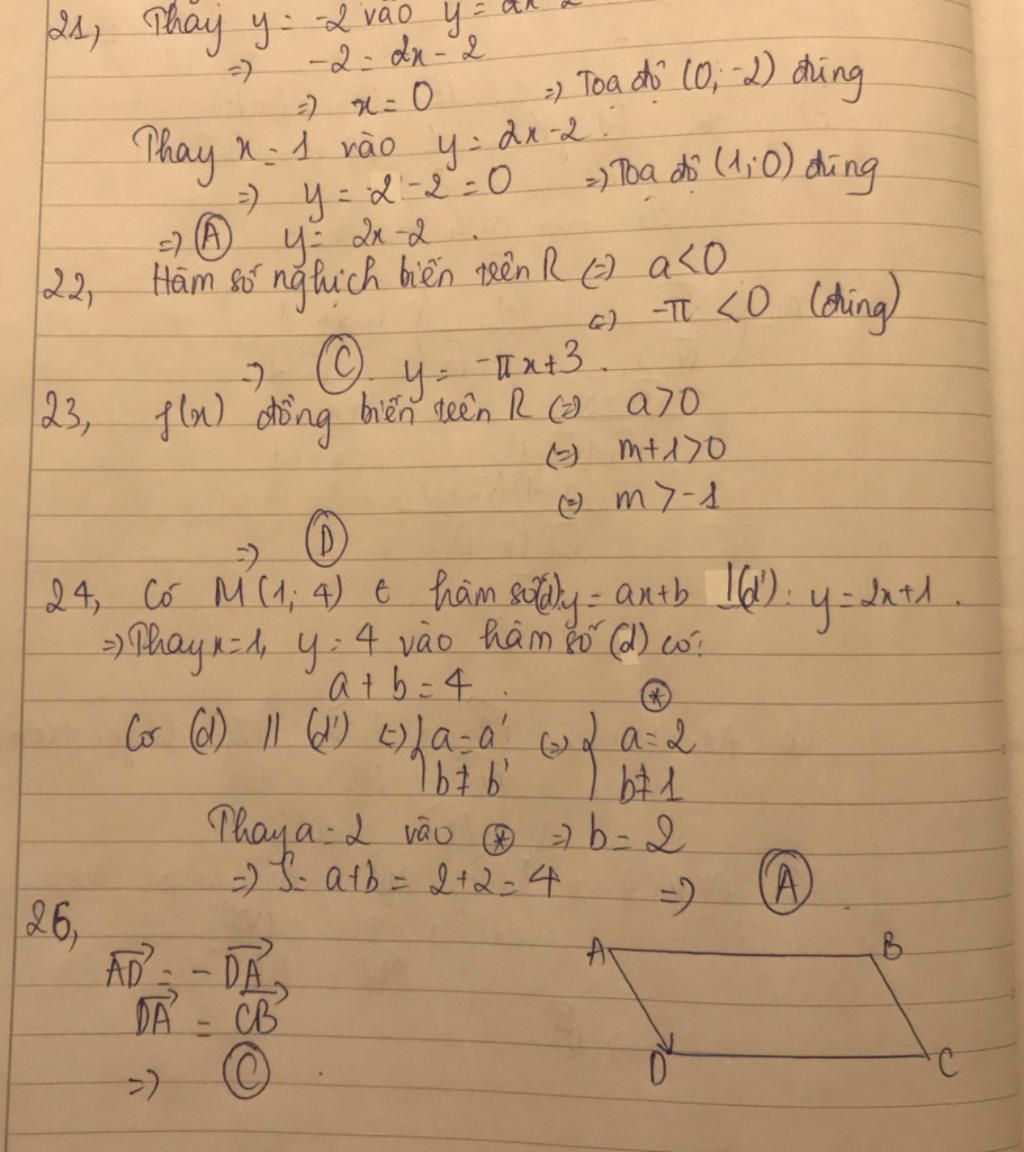 21, Thay y = -2 vào y = 2x - 2
=> -2 = 2x - 2
=> x = 0 => Toạ độ (0; -2) đúng
Thay x = 1 vào y = 2x - 2.
=> y = 2 - 2 = 0 => Toạ độ (1; 0) đúng
=> (A) y = 2x - 2.
22, Hàm số nghịch biến trên R (=) a < 0
(=) -π < 0 (đúng)
=> (C). y = -πx + 3.
23, f(x) đồng biến trên R (=) a > 0
(=) m + 1 > 0
(=) m > -1
=> (D)
24, Có M(1; 4) ∈ hàm số (d): y = ax + b (d'): y = 2x + 1.
=> Thay x = 1, y = 4 vào hàm số (d) có:
a + b = 4. (*)
Có (d) // (d') (=) { a = a' (=) { a = 2
b ≠ b' b ≠ 1
Thay a = 2 vào (*) => b = 2
=> S = a + b = 2 + 2 = 4 => (A).
26,
A B
\overrightarrow{AD} = - \overrightarrow{DA},
\overrightarrow{DA} = \overrightarrow{CB}
D C
=> (C).